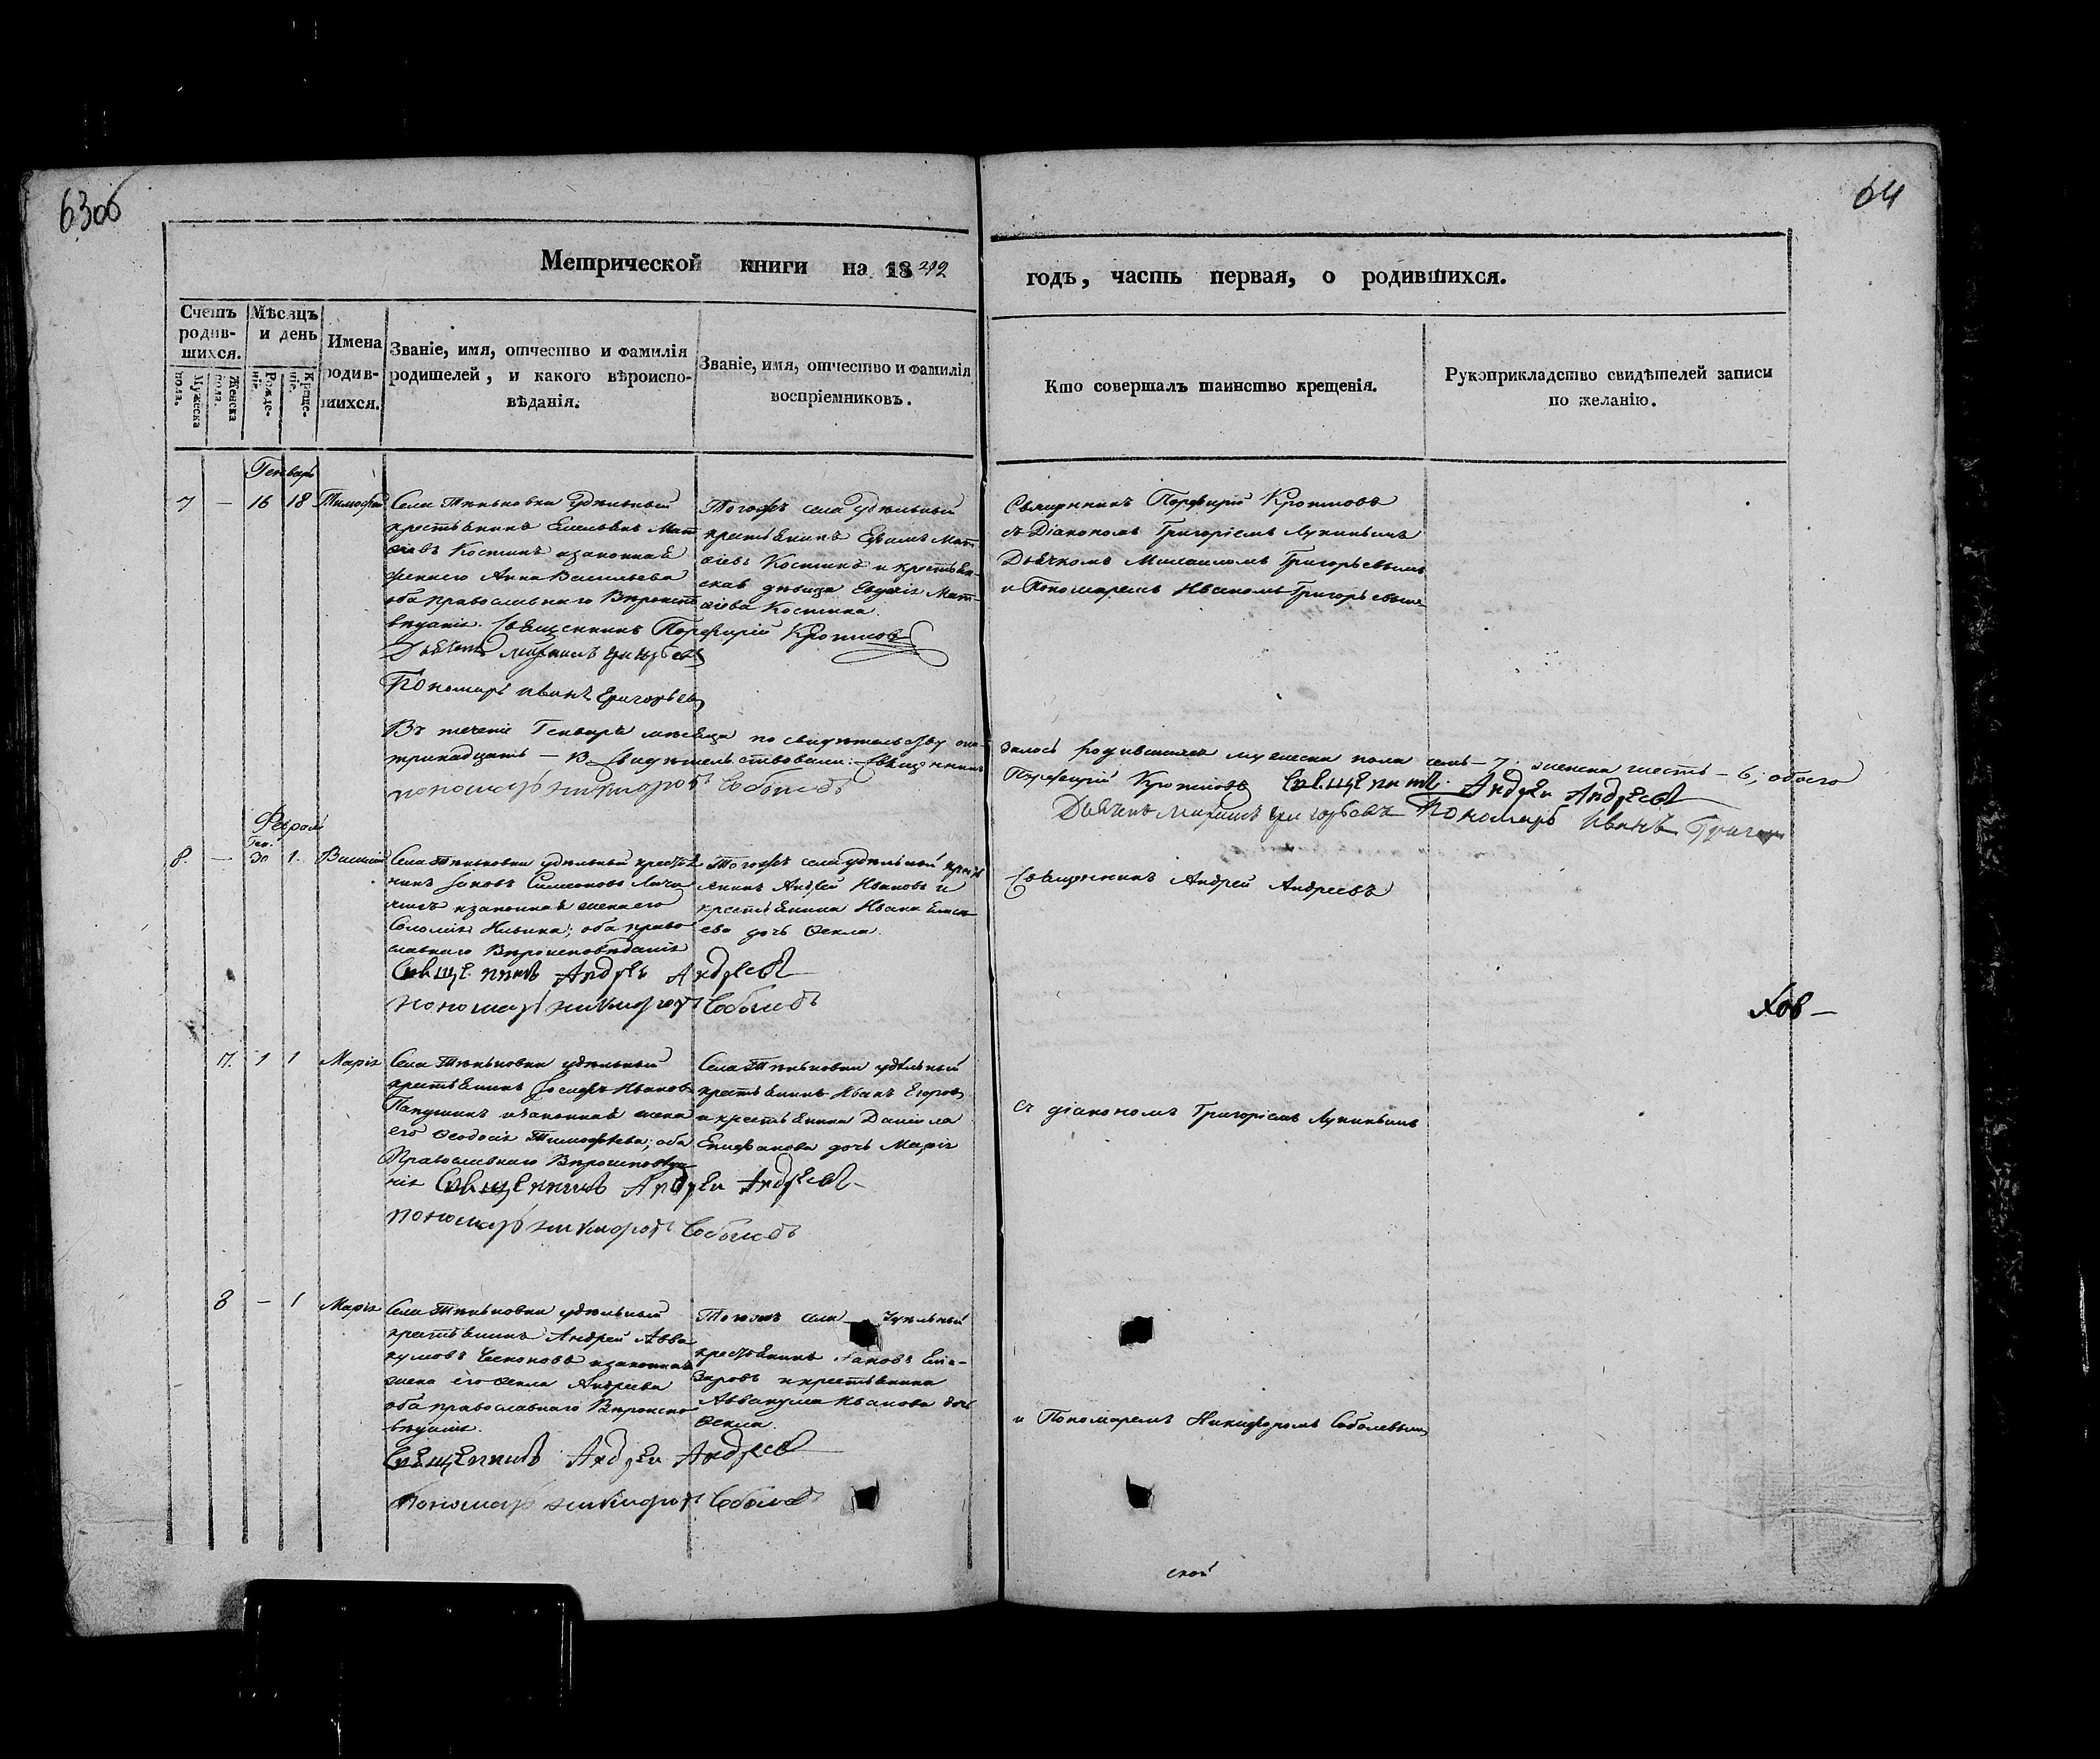 63об
64
Метрической книги на 1842
годъ, часть первая, о родившихся.
Счетъ родив-шихся.
Мужеска пола.
Женска пола.
Мѣсяцъ и день
Рожде-нiе.
Креще-нiе.
Имена родив-шихся.
Званiе, имя, отчество и фамилiя
родителей, и какого вѣроиспо-
вѣданiя.
Званiе, имя, отчество и фамилiя
воспрiемниковъ.
Кто совершалъ таинство крещенiя.
Рукоприкладство свидѣтелей записи
по желанiю.
Генварь
7 — 16 18 Тимофей
Села Тиньковки удѣльный
крестьянинъ Емельянъ Мат
ѳiевъ Костинъ и законная
жена его Анна Васильева
оба православнаго Вѣроиспо
вѣданiя. Священникъ Порфирiй Кротковъ
Дьячекъ Михаилъ Григорьевъ
Пономарь Иванъ Григорьевъ
Тогожъ села удѣльный
крестьянинъ Ефимъ Мат
ѳiевъ Костинъ и крестьян-
ская дѣвица Евдокiя Мат-
ѳiева Костина.
Священникъ Порфирiй Кротковъ
съ Дiакономъ Григорiемъ Лукинымъ
Дьячкомъ Михаиломъ Григорьевымъ
и Пономаремъ Иваномъ Григорьевымъ
Въ теченiе Генваря мѣсяца по свидѣтельству ока-
залось родившихся мужеска пола семь — 7; женска шесть — 6; обоего
тринадцать — 13 Свидѣтельствовали: Священникъ
Порфирiй Кротковъ Священникъ Андрей Андреевъ
пономарь Никифоръ Соболевъ
Дьячекъ Михаилъ Григорьевъ Пономарь Иванъ Григорь
Февраль
Ген.
8. — 30 1. Василiй
Села Тиньковки удѣльный крестья
нинъ Iаковъ Симеоновъ
и законная жена его
Соломiя Ильина; оба право
славнаго Вѣроисповѣданiя
Священникъ Андрей Андреевъ
пономарь Никифоръ Соболевъ
Тогожъ села удѣльный кресть
янинъ Андрей Ивановъ и
крестьянина Ивана
ева дочь Ѳекла.
Священникъ Андрей Андреевъ
7. 1 1 Марiя
Села Тиньковки удѣльный
крестьянинъ Iосифъ Ивановъ
Папушинъ и законная жена
его Ѳеодосiя Тимофѣева; оба
Православнаго Вѣроисповѣда
нiя Священникъ Андрей Андреевъ
пономарь Никифоръ Соболевъ
Села Тиньковки удѣльный
крестьянинъ Иванъ Егоровъ
и крестьянина Данiила
Епифанова дочь Марiя
съ дiакономъ Григорiемъ Лукинымъ
8 — 1 Марiя
Села Тиньковки удѣльный
крестьянинъ Андрей Авва
кумовъ и законная
жена его Ѳекла Андреева
оба православнаго Вѣроиспо
вѣданiя.
Священникъ Андрей Андреевъ
Пономарь Никифоръ Соболевъ
Тогожъ села удѣльный
крестьянинъ Iаковъ Елеа-
заровъ и крестьянина
Аввакума Иванова дочь
Ѳекла.
и Пономаремъ Никифоромъ Соболевымъ
ской